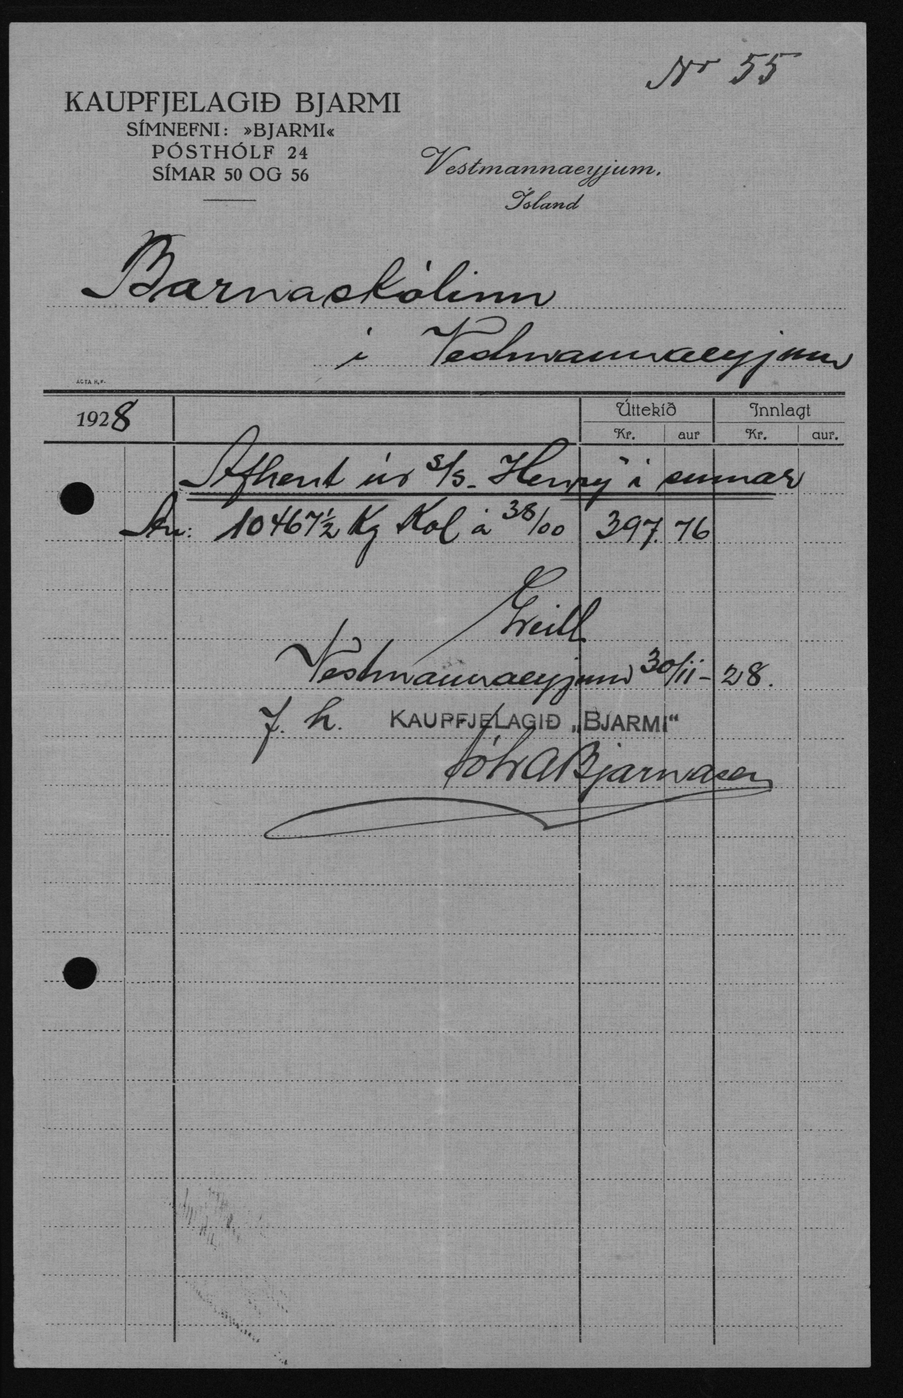 Nr 55
KAUPFJELAGIÐ BJARMI
SÍMNEFNI: »BJARMI«
PÓSTHÓLF 24
SÍMAR 50 OG 56
Vestmannaeyjum,
Ísland
Barnaskólinn
í Vestmannaeyjum
ACTA H.F.
1928
Úttekið Innlagt
Kr. aur Kr. aur.
Afhent úr s/s. "Henry" í sumar
10467½ Kg Kol á 38/00 397.76
Greitt
Vestmannaeyjum 30/11-28.
f. h. KAUPFJELAGIÐ „BJARMI“
Jóh A Bjarnasen